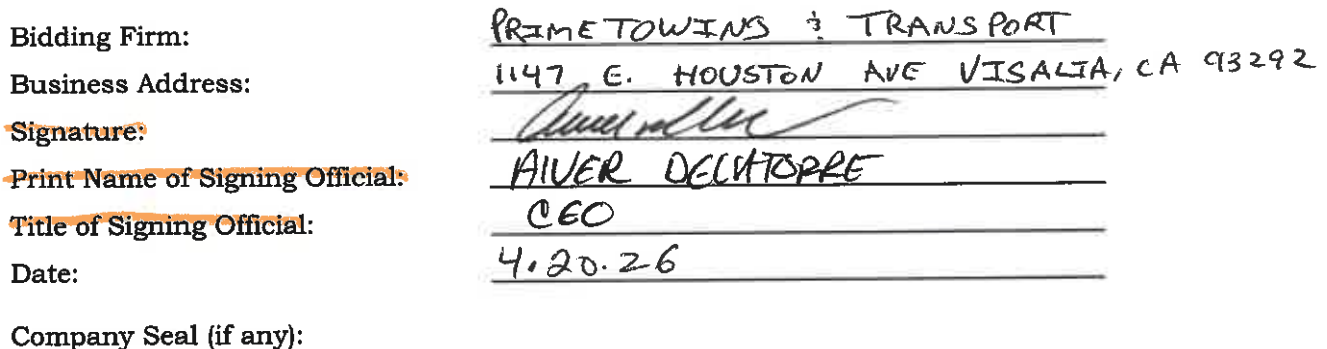 Bidding Firm: PRIME TOWING & TRANSPORT
Business Address: 1147 E. HOUSTON AVE VISALIA, CA 93292
Signature:
Print Name of Signing Official: AIVER DELATORRE
Title of Signing Official: CEO
Date: 4.20.26
Company Seal (if any):